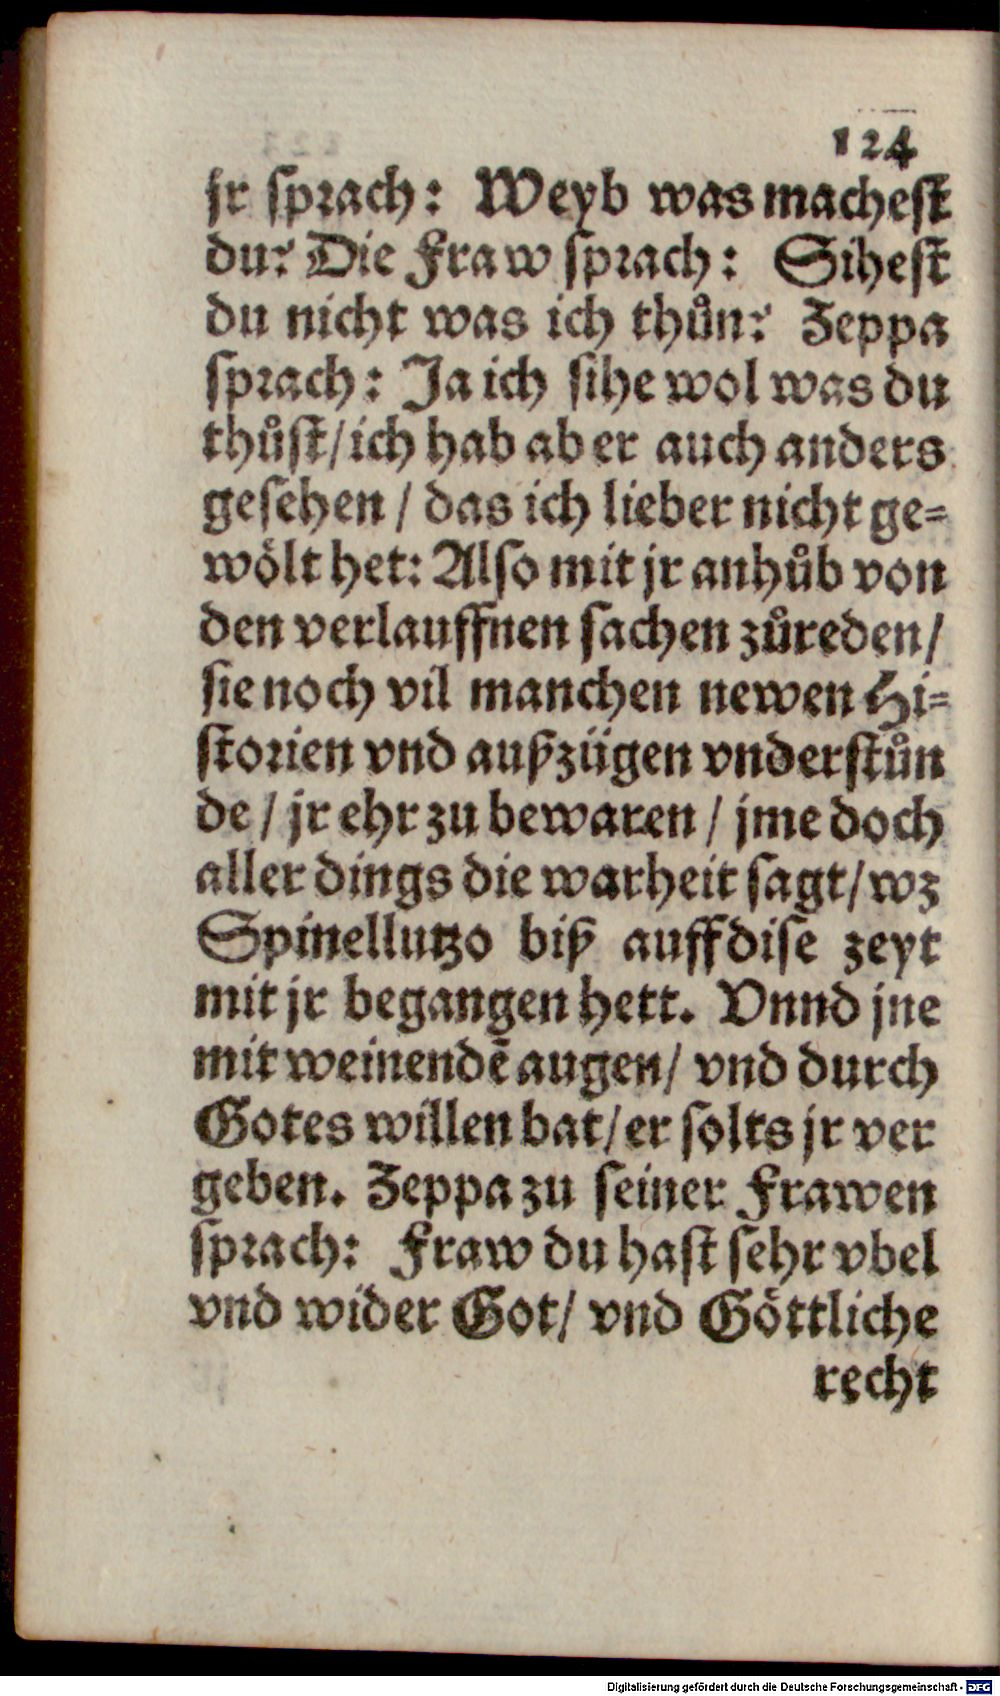 124
jr sprach: Weyb was machest
du? Die Fraw sprach: Sihest
du nicht was ich thůn? Zeppa
sprach: Ja ich sihe wol was du
thůst/ich hab aber auch anders
gesehen / das ich lieber nicht ge=
wölt het: Also mit jr anhůb von
den verlauffnen sachen zůreden/
sie noch vil manchen newen Hi=
storien vnd außzügen vnderstůn
de / jr ehr zu bewaren / jme doch
aller dings die warheit sagt/wz
Spinellutzo biß auff dise zeyt
mit jr begangen hett. Vnnd jne
mit weinendē augen/ vnd durch
Gotes willen bat/er solts jr ver
geben. Zeppa zu seiner Frawen
sprach: Fraw du hast sehr vbel
vnd wider Got/ vnd Göttliche
recht
Digitalisierung gefördert durch die Deutsche Forschungsgemeinschaft - DFG